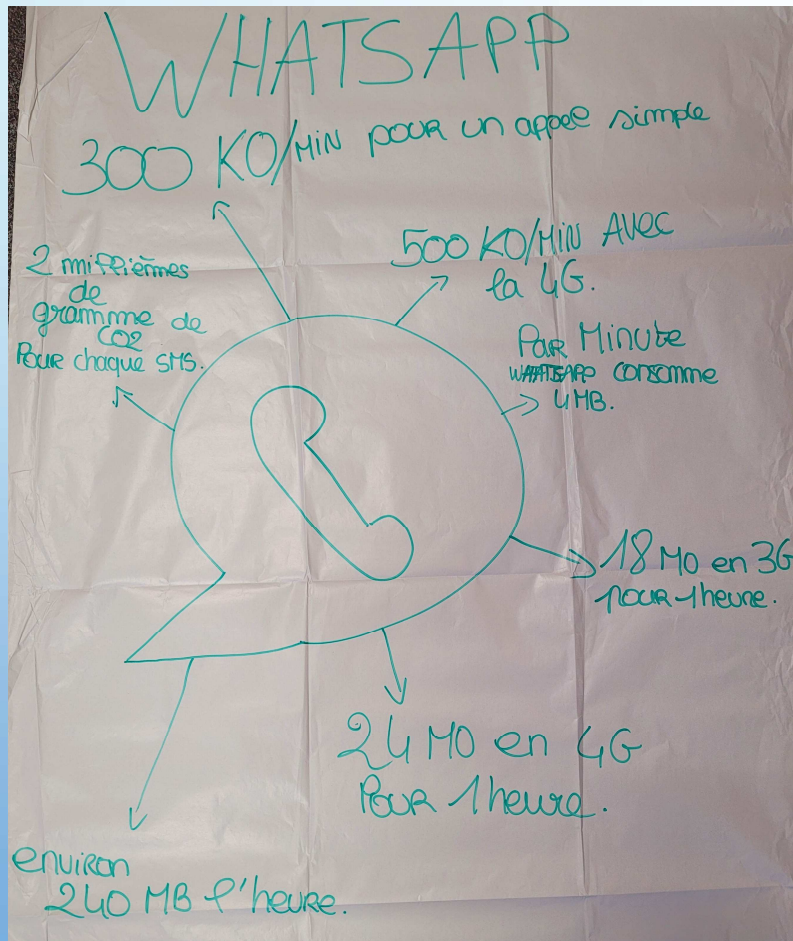 WHATSAPP
300 KO/MIN POUR un appel simple
500 KO/MIN AVEC
la 4G.
2 millièmes
de
gramme de
CO2
POUR chaque SMS.
PAR Minute
WHATSAPP consomme
4MB.
18 MO en 3G
POUR 1 heure.
24 MO en 4G
POUR 1 heure.
environ
240 MB l'heure.